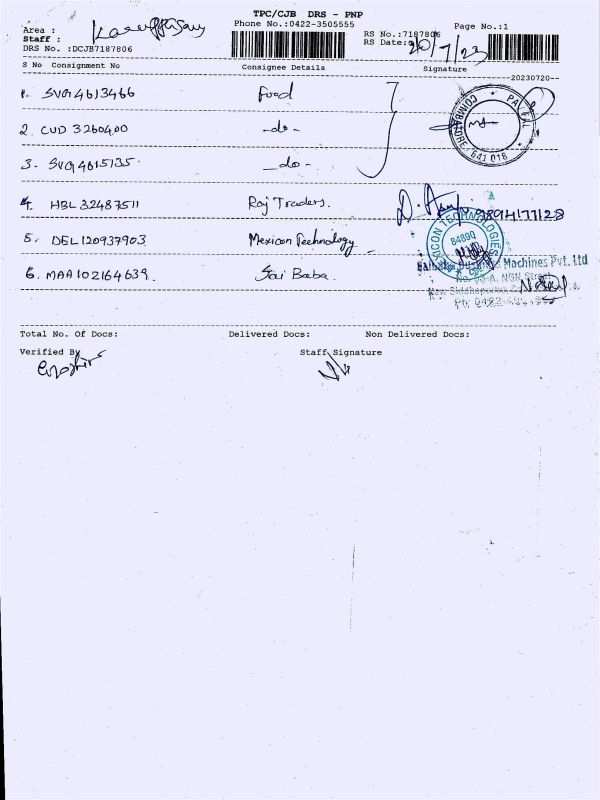 TPC/CJB DRS - PNP
Area :
Phone No.:0422-3505555
Page No.:1
Staff :
RS No.:7187806
DRS No. :DCJB7187806
RS Date: 20/7/23
S No Consignment No Consignee Details Signature
--20230720--
1. SVG14613466 Food
2. CUD 3260400 -do-
3. SVG4615135 -do-
4. HBL32487511 Raj Traders. 9894177128
5. DEL120937903 Mexicon Technology
6. MAA102164639. Sai Baba.
PAYPAL
COIMBATORE - 641 016
MEXICON TECHNOLOGIES
Machines Pvt. Ltd
Total No. Of Docs: Delivered Docs: Non Delivered Docs:
Verified By Staff Signature